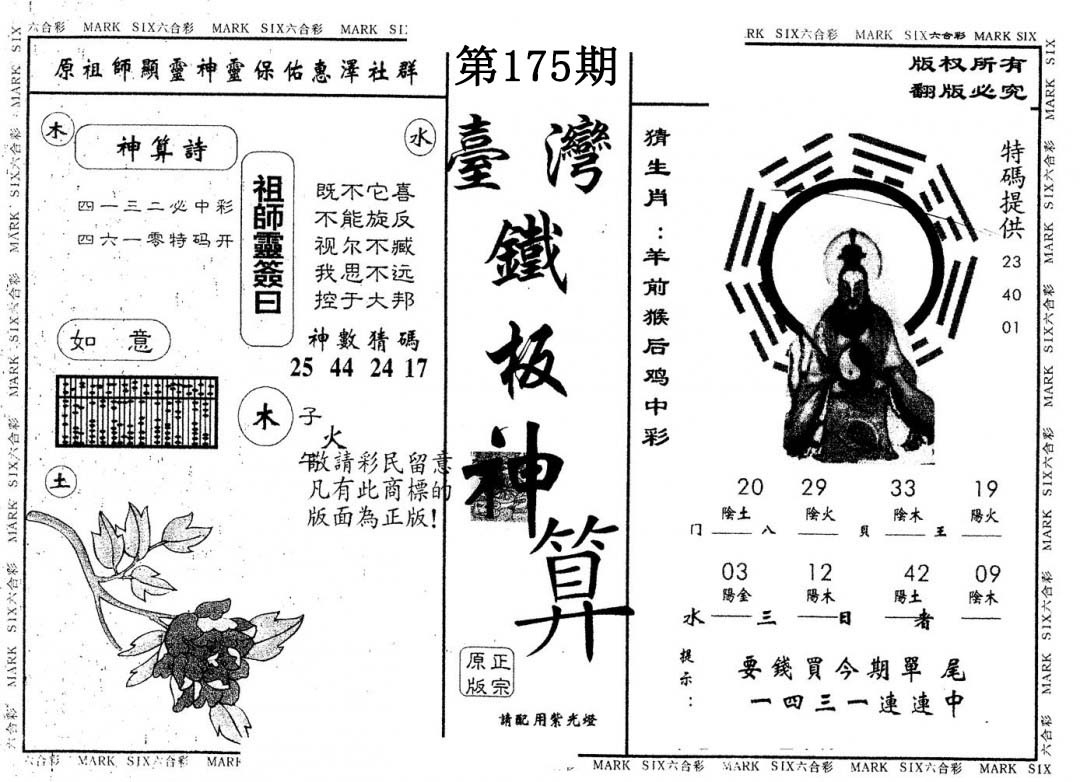 六合彩 MARK SIX六合彩 MARK SIX六合彩 MARK SI
RK SIX六合彩 MARK SIX六合彩 MARK SIX
原祖師顯靈神靈保佑惠澤社群
木
神算詩
水
四一三二必中彩
四六一零特码开
祖師靈簽曰
既不它喜
不能旋反
视尔不臧
我思不远
控于大邦
神數猜碼
25 44 24 17
如意
木
子
火
午
敬請彩民留意
凡有此商標的
版面為正版!
土
第175期
臺灣
鐵
板
神
算
正宗
原版
請配用紫光燈
版权所有
翻版必究
猜生肖:羊前猴后鸡中彩
特碼提供
23
40
01
20 29 33 19
陰土 陰火 陰木 陽火
门 八 貝 王
03 12 42 09
陽金 陽木 陽土 陰木
水 三 日 者
提示:
要錢買今期單尾
一四三一連連中
六合彩 MARK SIX六合彩 MARK
MARK SIX六合彩 MARK SIX六合彩 MARK SIX六合彩 MARK SIX
MARK SIX六合彩 MARK SIX六合彩 MARK SIX六合彩 MARK SIX六合彩 MARK SIX六合彩
MARK SIX六合彩 MARK SIX六合彩 MARK SIX六合彩 MARK SIX六合彩 MARK SIX六合彩